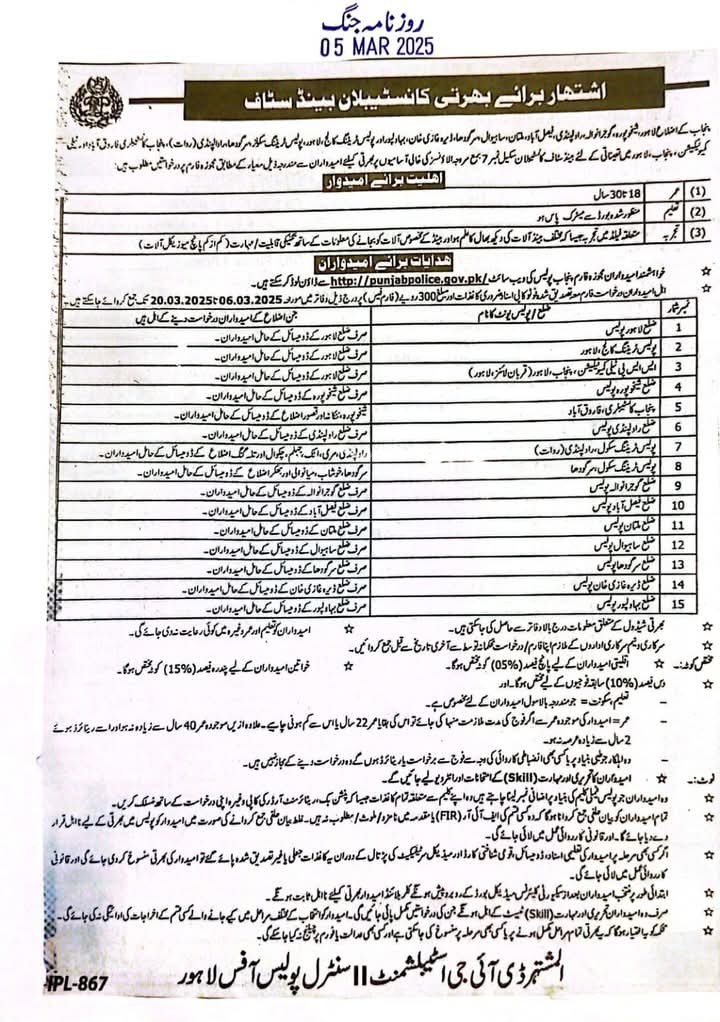 روزنامہ جنگ
05 MAR 2025
اشتہار برائے بھرتی کانسٹیبلان بینڈ سٹاف
پنجاب کے اضلاع لاہور، شیخوپورہ، گوجرانوالہ، راولپنڈی، فیصل آباد، ملتان، ساہیوال، سرگودھا، ڈیرہ غازی خان، بہاولپور اور پولیس ٹریننگ کالج، لاہور، پولیس ٹریننگ سکولز سرگودھا، راولپنڈی (روات)، پنجاب کانسٹیبلری فاروق آباد اور ٹیلی
کمیونیکیشن، پنجاب، لاہور میں تعیناتی کے لئے بینڈ سٹاف کانسٹیبلان سکیل نمبر 7 بمع مروجہ الاؤنسز کی خالی آسامیوں پر بھرتی کیلئے امیدواران سے مندرجہ ذیل معیار کے مطابق مجوزہ فارم پر درخواستیں مطلوب ہیں۔
اہلیت برائے امیدوار
(1) عمر 18 تا 30 سال
(2) تعلیم منظور شدہ بورڈ سے میٹرک پاس ہو
(3) تجربہ متعلقہ فیلڈ میں تجربہ جیسا کہ مختلف بینڈ آلات کی دیکھ بھال کا علم ہو اور بینڈ کے مخصوص آلات کو بجانے کی معلومات کے ساتھ تکنیکی قابلیت / مہارت (کم از کم پانچ میوزیکل آلات)
ہدایات برائے امیدواران
☆ خواہشمند امیدواران مجوزہ فارم پنجاب پولیس کی ویب سائٹ http://punjabpolice.gov.pk/ سے ڈاؤن لوڈ کر سکتے ہیں۔
☆ اہل امیدواران درخواست فارم معہ تصدیق شدہ فوٹو کاپی اسناد ضروری کاغذات اور مبلغ 300 روپے (فارم فیس) پر درج ذیل دفاتر میں مورخہ 06.03.2025 تا 20.03.2025 تک جمع کروائے جا سکتے ہیں۔
نمبر شمار ضلع / پولیس یونٹ کا نام جن اضلاع کے امیدواران درخواست دینے کے اہل ہیں
1 ضلع لاہور پولیس صرف ضلع لاہور کے ڈومیسائل کے حامل امیدواران۔
2 پولیس ٹریننگ کالج، لاہور صرف ضلع لاہور کے ڈومیسائل کے حامل امیدواران۔
3 ایس ایس پی ٹیلی کمیونیکیشن، پنجاب، لاہور (قربان لائنز، لاہور) صرف ضلع لاہور کے ڈومیسائل کے حامل امیدواران۔
4 ضلع شیخوپورہ پولیس صرف ضلع شیخوپورہ کے ڈومیسائل کے حامل امیدواران۔
5 پنجاب کانسٹیبلری، فاروق آباد شیخوپورہ، ننکانہ اور قصور اضلاع کے ڈومیسائل کے حامل امیدواران۔
6 ضلع راولپنڈی پولیس صرف ضلع راولپنڈی کے ڈومیسائل کے حامل امیدواران۔
7 پولیس ٹریننگ سکول، راولپنڈی (روات) راولپنڈی، مری، اٹک، جہلم، چکوال اور تلہ گنگ اضلاع کے ڈومیسائل کے حامل امیدواران۔
8 پولیس ٹریننگ سکول، سرگودھا سرگودھا، خوشاب، میانوالی اور بھکر اضلاع کے ڈومیسائل کے حامل امیدواران۔
9 ضلع گوجرانوالہ پولیس صرف ضلع گوجرانوالہ کے ڈومیسائل کے حامل امیدواران۔
10 ضلع فیصل آباد پولیس صرف ضلع فیصل آباد کے ڈومیسائل کے حامل امیدواران۔
11 ضلع ملتان پولیس صرف ضلع ملتان کے ڈومیسائل کے حامل امیدواران۔
12 ضلع ساہیوال پولیس صرف ضلع ساہیوال کے ڈومیسائل کے حامل امیدواران۔
13 ضلع سرگودھا پولیس صرف ضلع سرگودھا کے ڈومیسائل کے حامل امیدواران۔
14 ضلع ڈیرہ غازی خان پولیس صرف ضلع ڈیرہ غازی خان کے ڈومیسائل کے حامل امیدواران۔
15 ضلع بہاولپور پولیس صرف ضلع بہاولپور کے ڈومیسائل کے حامل امیدواران۔
☆ بھرتی شیڈول کے متعلق معلومات درج بالا دفاتر سے حاصل کی جا سکتی ہیں۔ ☆ امیدواران کو تعلیم اور عمر وغیرہ میں کوئی رعایت نہ دی جائے گی۔
☆ سرکاری و نیم سرکاری اداروں کے ملازم اپنا فارم / درخواست محکمانہ توسط سے آخری تاریخ سے قبل جمع کروائیں۔
مختص کوٹہ:۔ ☆ اقلیتی امیدواران کے لیے پانچ فیصد (05%) کوٹہ مختص ہوگا۔ ☆ خواتین امیدواران کے لیے پندرہ فیصد (15%) کوٹہ مختص ہوگا۔
☆ دس فیصد (10%) سابقہ فوجیوں کے لیے مختص ہوگا۔ اور
– تعلیم، سکونت = جو مندرجہ بالا سول امیدواران کے لئے مخصوص ہے۔
– عمر = امیدوار کی موجودہ عمر سے اگر فوج کی مدت ملازمت منہا کی جائے تو اس کی بقایا عمر 22 سال یا اس سے کم ہونی چاہیے۔ علاوہ ازیں موجودہ عمر 40 سال سے زیادہ نہ ہو اور اسے ریٹائرڈ ہوئے
2 سال سے زیادہ عرصہ نہ ہو۔
– وہ اہلکار جو طبی بنیاد پر یا کسی بھی انضباطی کارروائی کی وجہ سے فوج سے برخاست یا ریٹائرڈ ہوں گے وہ درخواست دینے کے مجاز نہیں ہیں۔
نوٹ:۔ ☆ امیدواران کا تحریری اور مہارت (Skill) کے امتحانات اور انٹرویو لیے جائیں گے۔
☆ وہ امیدواران جو پولیس فیملی کلیم کی بنیاد پر اضافی نمبر لینا چاہتے ہیں وہ اپنے کلیم سے متعلقہ تمام کاغذات جیسا کہ پنشن بک، ریٹائرمنٹ آرڈر کی کاپی وغیرہ اپنی درخواست کے ساتھ منسلک کریں۔
☆ تمام امیدواران کو بیان حلفی جمع کروانا ہوگا کہ وہ کسی قسم کی ایف آئی آر (FIR) یا مقدمہ میں نامزد / ملوث / مطلوب نہ ہیں۔ غلط بیان حلفی جمع کروانے کی صورت میں امیدوار کو پولیس میں بھرتی کے لیے نا اہل قرار
دے دیا جائے گا۔ اور قانونی کارروائی عمل میں لائی جائے گی۔
☆ اگر کسی بھی مرحلہ پر امیدوار کی تعلیمی اسناد و ڈومیسائل، قومی شناختی کارڈ اور میڈیکل سرٹیفکیٹ کی پڑتال کے دوران یہ کاغذات جعلی یا غیر تصدیق شدہ پائے گئے تو امیدوار کی بھرتی منسوخ کر دی جائے گی اور قانونی
کارروائی عمل میں لائی جائے گی۔
☆ ابتدائی طور پر منتخب امیدواران بعد از سیکیورٹی کلیئرنس میڈیکل بورڈ کے روبرو پیش ہونگے کلر بلائنڈ امیدوار بھرتی کیلئے نا اہل ثابت ہونگے۔
☆ صرف وہ امیدواران تحریری اور مہارت (Skill) ٹیسٹ کے اہل ہونگے جن کی درخواستیں مکمل پائی جائیں گی۔ امیدوار کو انتخاب کے مختلف مراحل میں کیے جانے والے کسی قسم کے اخراجات کی ادائیگی نہ کی جائے گی۔
☆ محکمہ کو یہ اختیار ہوگا کہ یہ بھرتی تمام مراحل مکمل ہونے پر یا کسی بھی مرحلہ پر منسوخ کی جا سکتی ہے اور کسی بھی عدالت یا فورم پر چیلنج نہ کیا جا سکے گا۔
المشتہر ڈی آئی جی اسٹیبلشمنٹ II سنٹرل پولیس آفس لاہور
IPL-867